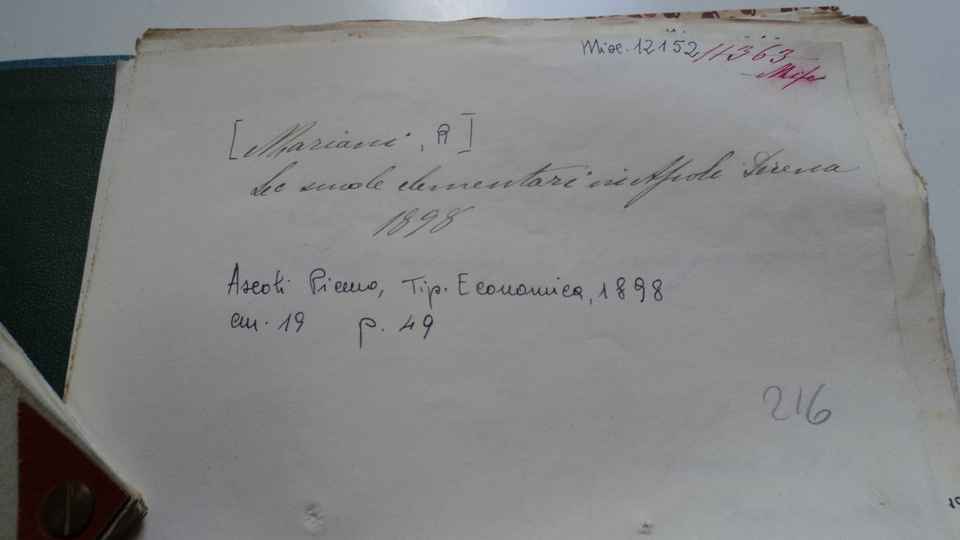 Misc. 12152 11363
Misc
[Mariani, A]
Le scuole elementari in Apoli Direna
1898
Ascoli Piceno, Tip. Economica, 1898
cm. 19 p. 49
216